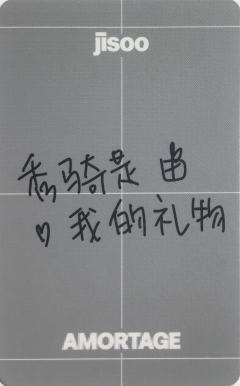 jisoo
香骑是
♡ 我的礼物
AMORTAGE